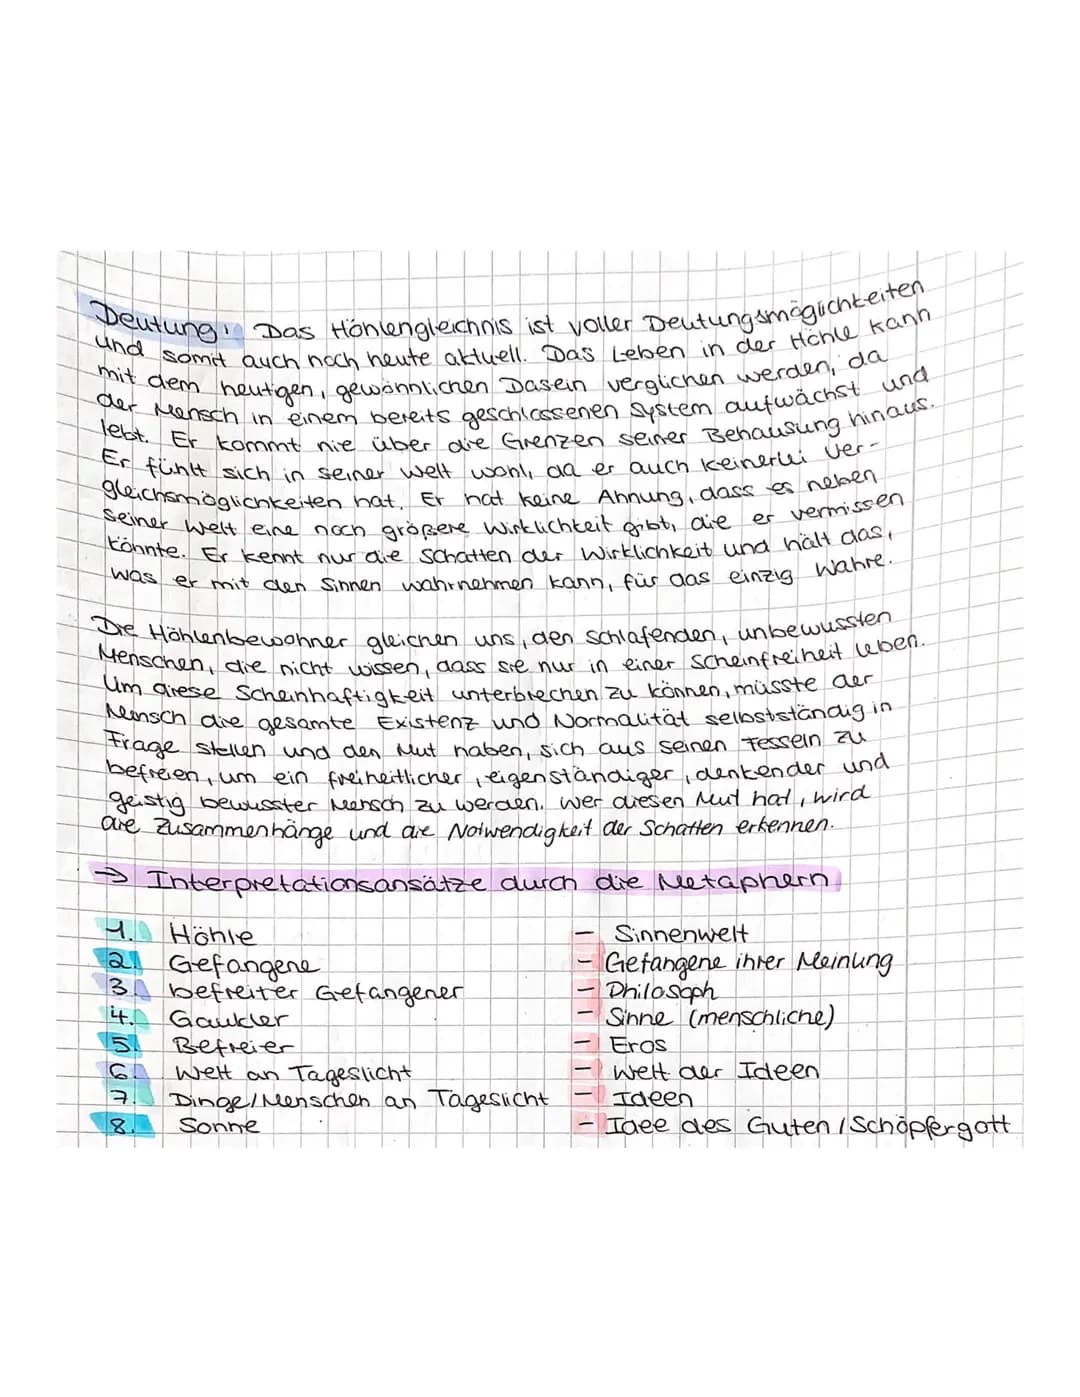 Deutung: Das Höhlengleichnis ist voller Deutungsmöglichkeiten
und somit auch noch heute aktuell. Das Leben in der Höhle kann
mit dem heutigen, gewöhnlichen Dasein verglichen werden, da
der Mensch in einem bereits geschlossenen System aufwächst und
lebt. Er kommt nie über die Grenzen seiner Behausung hinaus.
Er fühlt sich in seiner Welt wohl, da er auch keinerlei Ver-
gleichsmöglichkeiten hat. Er hat keine Ahnung, dass es neben
seiner Welt eine noch größere Wirklichkeit gibt, die er vermissen
könnte. Er kennt nur die Schatten der Wirklichkeit und hält das,
was er mit den Sinnen wahrnehmen kann, für das einzig Wahre.
Die Höhlenbewohner gleichen uns, den schlafenden, unbewussten
Menschen, die nicht wissen, dass sie nur in einer Scheinfreiheit leben.
Um diese Scheinhaftigkeit unterbrechen zu können, müsste der
Mensch die gesamte Existenz und Normalität selbstständig in
Frage stellen und den Mut haben, sich aus seinen Fesseln zu
befreien, um ein freiheitlicher, eigenständiger, denkender und
geistig bewusster Mensch zu werden. Wer diesen Mut hat, wird
die Zusammenhänge und die Notwendigkeit der Schatten erkennen.
→ Interpretationsansätze durch die Metaphern
1. Höhle - Sinnenwelt
2. Gefangene - Gefangene ihrer Meinung
3. befreiter Gefangener - Philosoph
4. Gaukler - Sinne (menschliche)
5. Befreier - Eros
6. Welt an Tageslicht - Welt der Ideen
7. Dinge/Menschen an Tageslicht - Ideen
8. Sonne - Idee des Guten/Schöpfergott